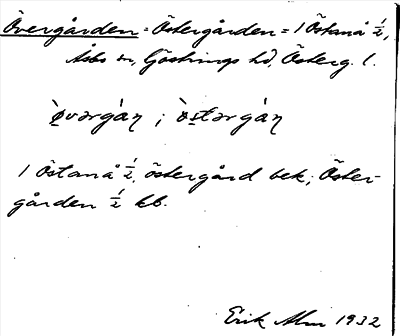 Övergården = Östergården = 1 Östanå ½,
Åsbo sn, Göstrings hd, Österg. l.
`øvərgὰn ; `ὸstərgὰn
1 Östanå ½, östergård bek.; Öster-
gården ½ kb.
Erik Alm 1932